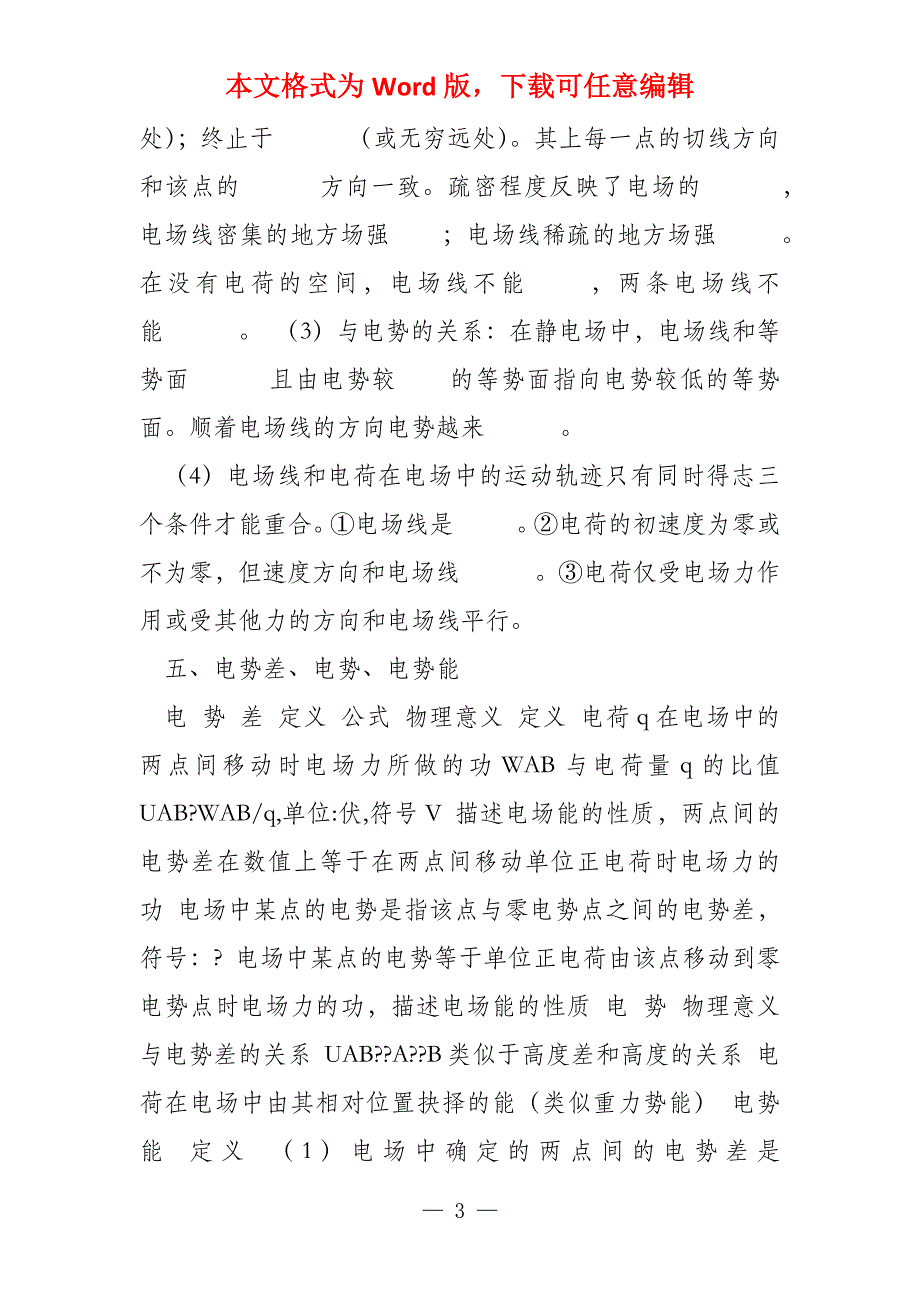 本文格式为 Word 版，下载可任意编辑
处）；终止于 （或无穷远处）。其上每一点的切线方向
和该点的 方向一致。疏密程度反映了电场的 ，
电场线密集的地方场强 ；电场线稀疏的地方场强 。
在没有电荷的空间，电场线不能 ，两条电场线不
能 。 （3）与电势的关系：在静电场中，电场线和等
势面 且由电势较 的等势面指向电势较低的等势
面。顺着电场线的方向电势越来 。
（4）电场线和电荷在电场中的运动轨迹只有同时得志三
个条件才能重合。①电场线是 。②电荷的初速度为零或
不为零，但速度方向和电场线 。③电荷仅受电场力作
用或受其他力的方向和电场线平行。
五、电势差、电势、电势能
电 势 差 定义 公式 物理意义 定义 电荷 q 在电场中的
两点间移动时电场力所做的功 WAB 与电荷量 q 的比值
UAB?WAB/q,单位:伏,符号 V 描述电场能的性质，两点间的
电势差在数值上等于在两点间移动单位正电荷时电场力的
功 电场中某点的电势是指该点与零电势点之间的电势差，
符号：? 电场中某点的电势等于单位正电荷由该点移动到零
电势点时电场力的功，描述电场能的性质 电 势 物理意义
与电势差的关系 UAB??A??B 类似于高度差和高度的关系 电
荷在电场中由其相对位置抉择的能（类似重力势能） 电势
能 定义 （1）电场中确定的两点间的电势差是
— 3 —